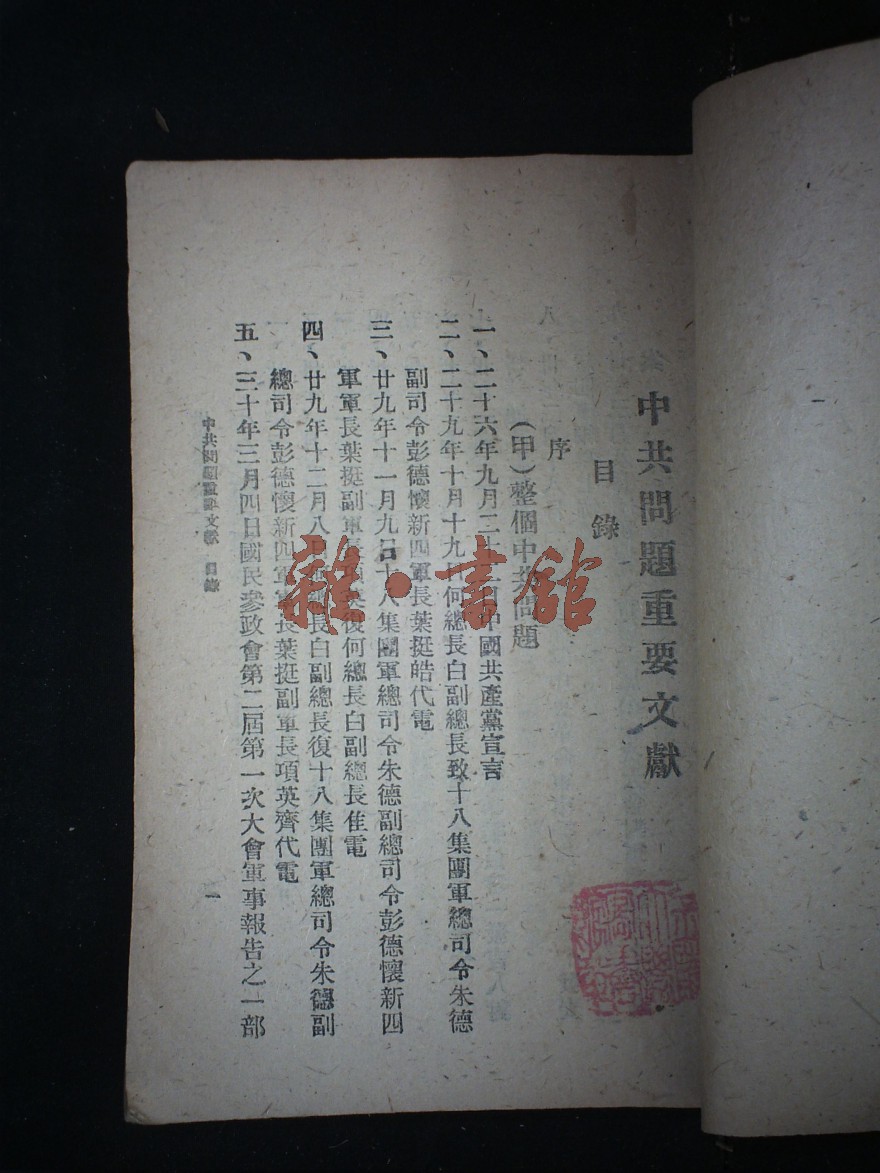 中共問題重要文獻
目錄
序
(甲)整個中共問題
一、二十六年九月二十二日中國共產黨宣言
二、二十九年十月十九日何總長白副總長致十八集團軍總司令朱德
副司令彭德懷新四軍長葉挺皓代電
三、廿九年十一月九日十八集團軍總司令朱德副總司令彭德懷新四
軍軍長葉挺副軍長項英復何總長白副總長佳電
四、廿九年十二月八日何總長白副總長復十八集團軍總司令朱德副
總司令彭德懷新四軍軍長葉挺副軍長項英齊代電
五、三十年三月四日國民參政會第二屆第一次大會軍事報告之一部
中共問題重要文獻 目錄
一
雜·書館